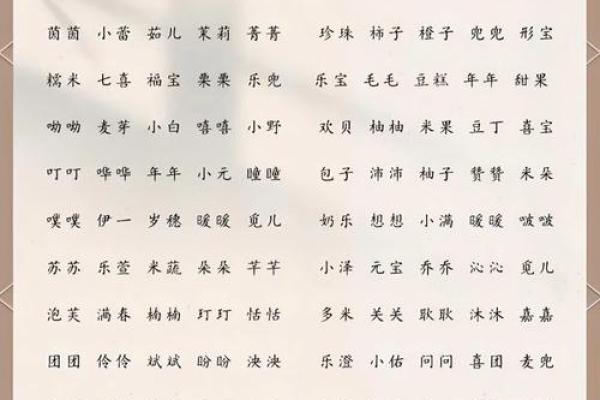 茵茵 小蕾 茹儿 茉莉 菁菁 珍珠 柿子 橙子 兜兜 彤宝
糯米 七喜 福宝 栗栗 乐兜 乐宝 毛毛 豆糕 年年 甜果
呦呦 麦芽 小白 嘻嘻 小野 欢贝 柚柚 米果 豆丁 喜宝
叮叮 哗哗 年年 小元 瞳瞳 包子 沛沛 柚子 赞赞 米朵
噗噗 伊一 岁穗 暖暖 觅儿 奶乐 想想 小满 暖暖 啵啵
苏苏 乐萱 米蔬 朵朵 芊芊 小泽 元宝 乔乔 沁沁 觅儿
泡芙 满春 楠楠 玎玎 恬恬 多米 关关 耿耿 沐沐 嘉嘉
团团 伶伶 斌斌 盼盼 泱泱 乐澄 小佑 问问 喜团 麦兜